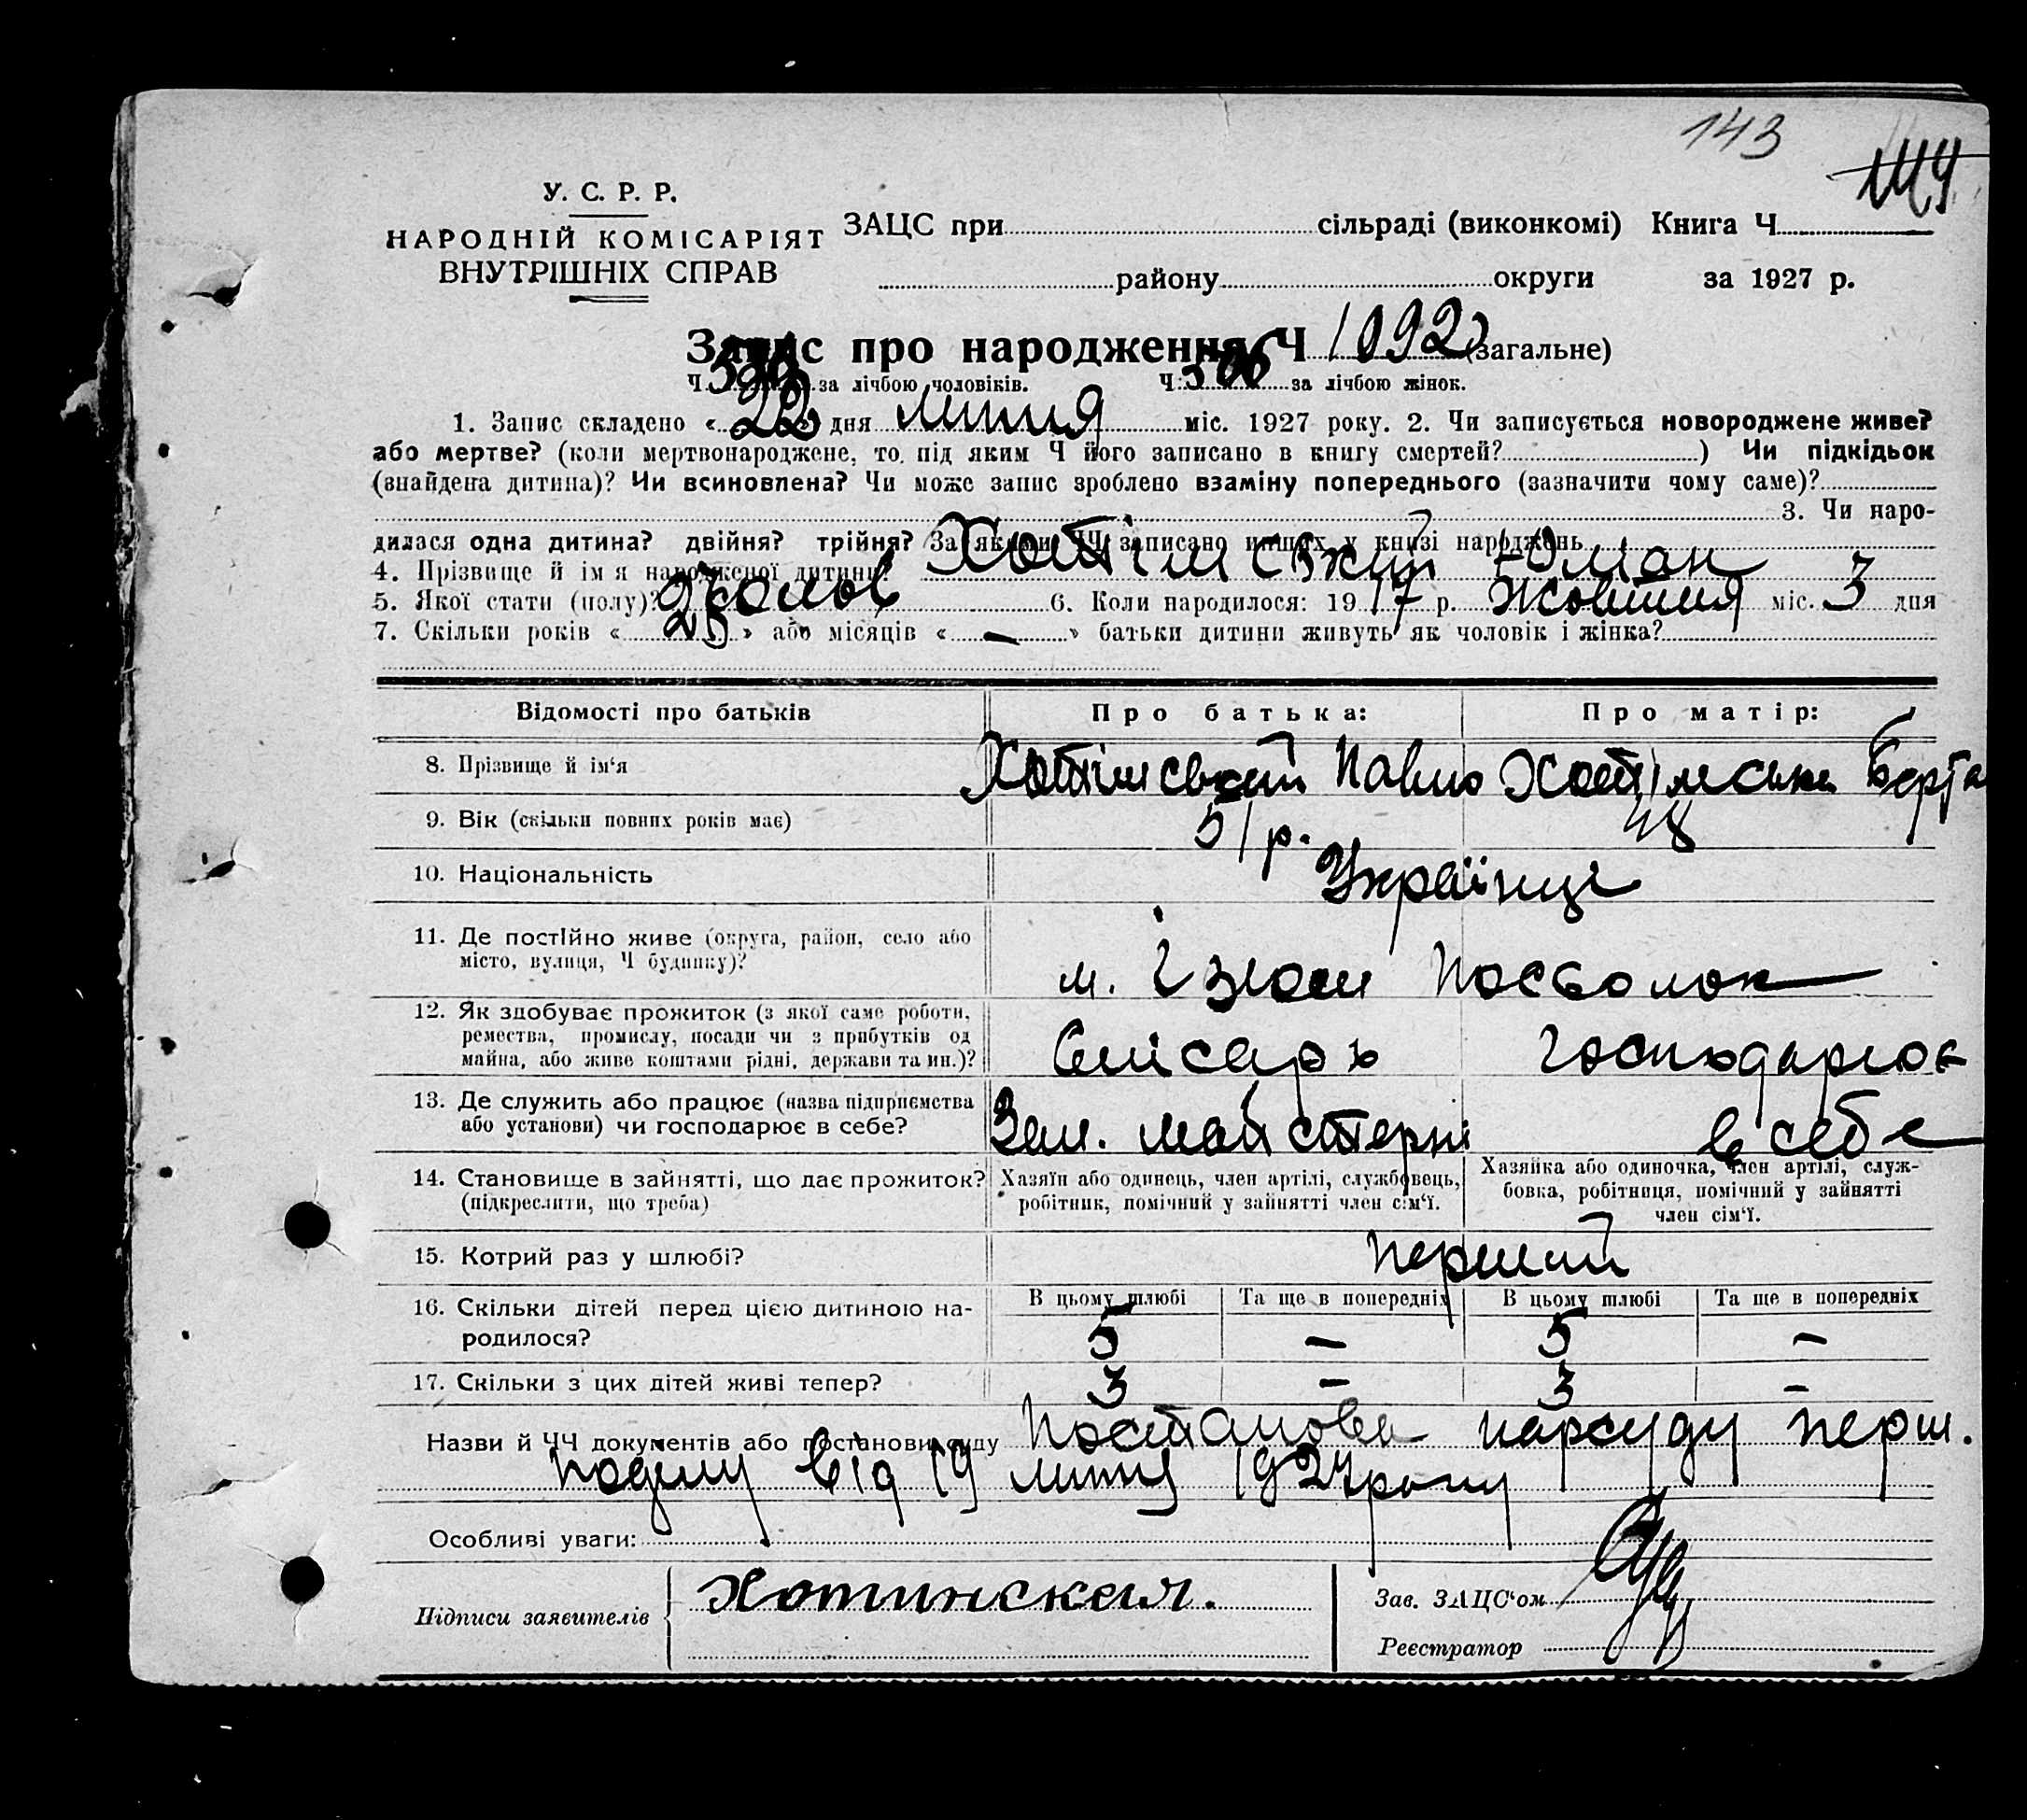 143
144
У. С. Р. Р.
НАРОДНІЙ КОМІСАРІЯТ
ВНУТРІШНІХ СПРАВ
ЗАЦС при сільраді (виконкомі) Книга Ч
району округи за 1927 р.
Запис про народження Ч 1092 (загальне)
Ч. за лічбою чоловіків. Ч. за лічбою жінок.
1. Запис складено « 22 » дня липня міс. 1927 року. 2. Чи записується новороджене живе?
або мертве? (коли мертвонароджене, то під яким Ч його записано в книгу смертей? ) Чи підкідьок
(знайдена дитина)? Чи всиновлена? Чи може запис зроблено взаміну попереднього (зазначити чому саме)?
3. Чи наро-
дилася одна дитина? двійня? трійня? За якими ЧЧ записано инших у книзі народжень
4. Прізвище й ім'я народженої дитини? Хотімський Юман
5. Якої стати (полу)? чолов 6. Коли народилося: 1917 р. Жовтня міс. 3 дня
7. Скільки років « 25 » або місяців « — » батьки дитини живуть як чоловік і жінка?
Відомості про батьків Про батька: Про матір:
8. Прізвище й ім'я Хотімський Павло Хотімська Берта
9. Вік (скільки повних років має) 51 р. 48
10. Національність Українці
11. Де постійно живе (округа, район, село або
місто, вулиця, Ч будинку)? м. Ізюм
12. Як здобуває прожиток (з якої саме роботи,
ремества, промислу, посади чи з прибутків од
майна, або живе коштами рідні, держави та ин.)? Слісарь господарює
13. Де служить або працює (назва підприємства
або установи) чи господарює в себе? Зал. майстерні в себе
14. Становище в зайнятті, що дає прожиток?
(підкреслити, що треба)
Хазяїн або одинець, член артілі, службовець,
робітник, помічний у зайнятті член сім'ї.
Хазяйка або одиночка, член артілі, служ-
бовка, робітниця, помічний у зайнятті
член сім'ї.
15. Котрий раз у шлюбі? перший
16. Скільки дітей перед цією дитиною на-
родилося?
В цьому шлюбі Та ще в попередніх В цьому шлюбі Та ще в попередніх
5 — 5 —
17. Скільки з цих дітей живі тепер? 3 — 3 —
Назви й ЧЧ документів або постанови суду Постанова нарсуду перш.
від 19 липня 1927 року
Особливі уваги:
Підписи заявителів Хотинская.
Зав. ЗАЦС'ом
Реєстратор